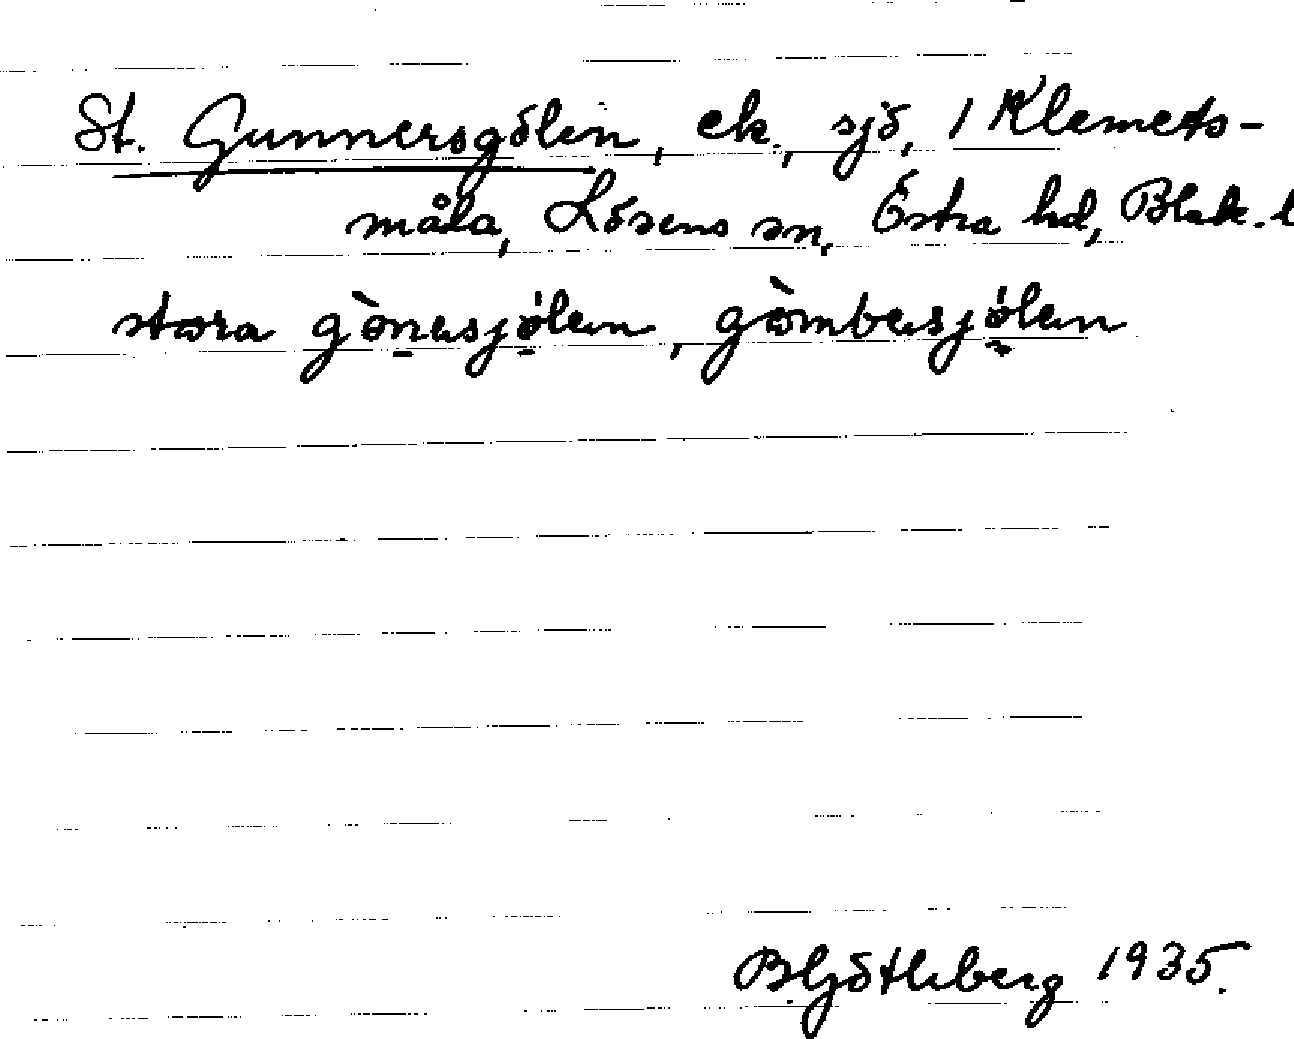 St. Gunnersgölen, ek., sjö, 1 Klemets-
måla, Lösens sn, Östra hd, Blek. l
stora gònesjölen, gòmbesjölen
B. Götlberg 1935.